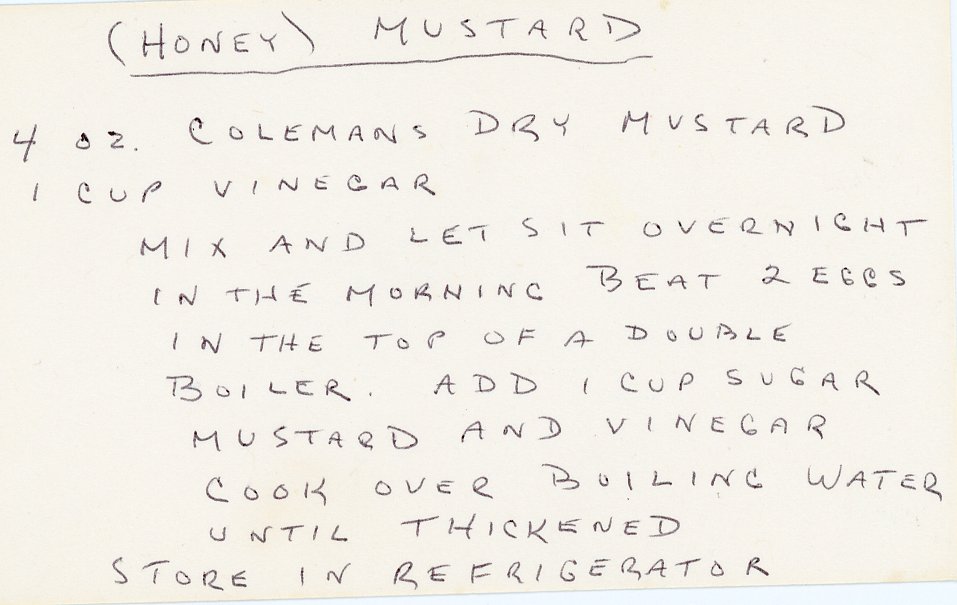 (HONEY) MUSTARD
4 oz. COLEMANS DRY MUSTARD
1 CUP VINEGAR
MIX AND LET SIT OVERNIGHT
IN THE MORNING BEAT 2 EGGS
IN THE TOP OF A DOUBLE
BOILER. ADD 1 CUP SUGAR
MUSTARD AND VINEGAR
COOK OVER BOILING WATER
UNTIL THICKENED
STORE IN REFRIGERATOR